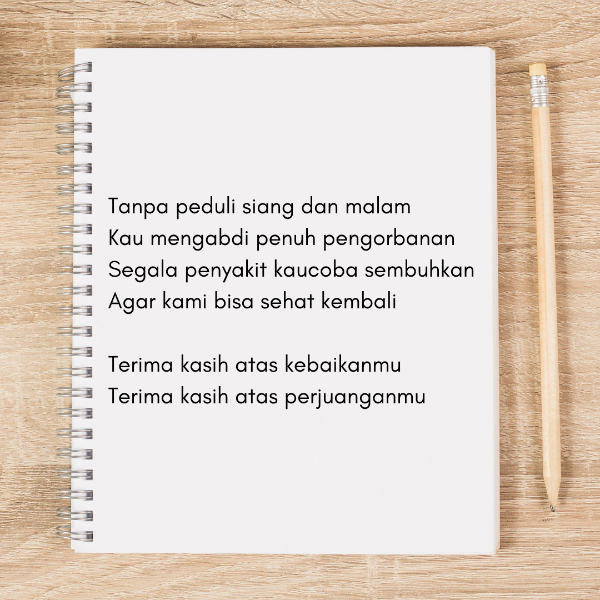 Tanpa peduli siang dan malam
Kau mengabdi penuh pengorbanan
Segala penyakit kaucoba sembuhkan
Agar kami bisa sehat kembali

Terima kasih atas kebaikanmu
Terima kasih atas perjuanganmu